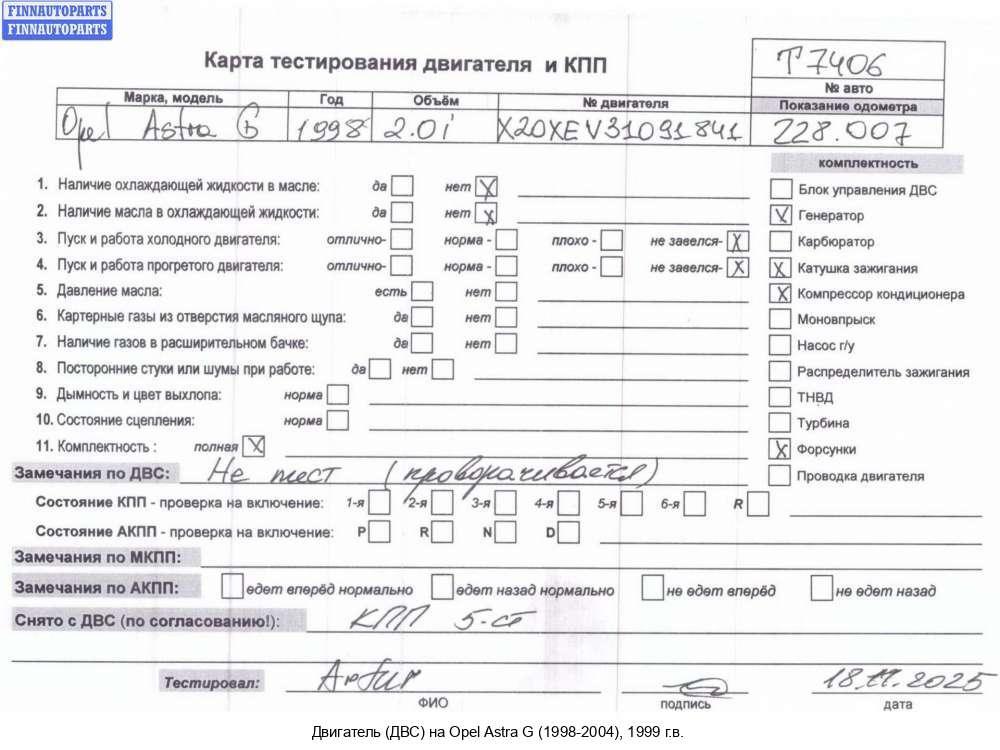 FINNAUTOPARTS
FINNAUTOPARTS
Карта тестирования двигателя и КПП
T7406
№ авто
Марка, модель Год Объём № двигателя Показание одометра
Opel Astra G 1998 2.0i X20XEV31091841 228.007
комплектность
1. Наличие охлаждающей жидкости в масле: да нет X
Блок управления ДВС
2. Наличие масла в охлаждающей жидкости: да нет X
X Генератор
3. Пуск и работа холодного двигателя: отлично- норма - плохо - не завелся- X
Карбюратор
4. Пуск и работа прогретого двигателя: отлично- норма - плохо - не завелся- X
X Катушка зажигания
5. Давление масла: есть нет
X Компрессор кондиционера
6. Картерные газы из отверстия масляного щупа: да нет
Моновпрыск
7. Наличие газов в расширительном бачке: да нет
Насос г/у
8. Посторонние стуки или шумы при работе: да нет
Распределитель зажигания
9. Дымность и цвет выхлопа: норма
ТНВД
10. Состояние сцепления: норма
Турбина
11. Комплектность : полная X
X Форсунки
Замечания по ДВС: Не тест (проворачивается)
Проводка двигателя
Состояние КПП - проверка на включение: 1-я 2-я 3-я 4-я 5-я 6-я R
Состояние АКПП - проверка на включение: P R N D
Замечания по МКПП:
Замечания по АКПП: едет вперёд нормально едет назад нормально не едет вперёд не едет назад
Снято с ДВС (по согласованию!): КПП 5-ст
Тестировал: Artur 18.11.2025
ФИО подпись дата
Двигатель (ДВС) на Opel Astra G (1998-2004), 1999 г.в.